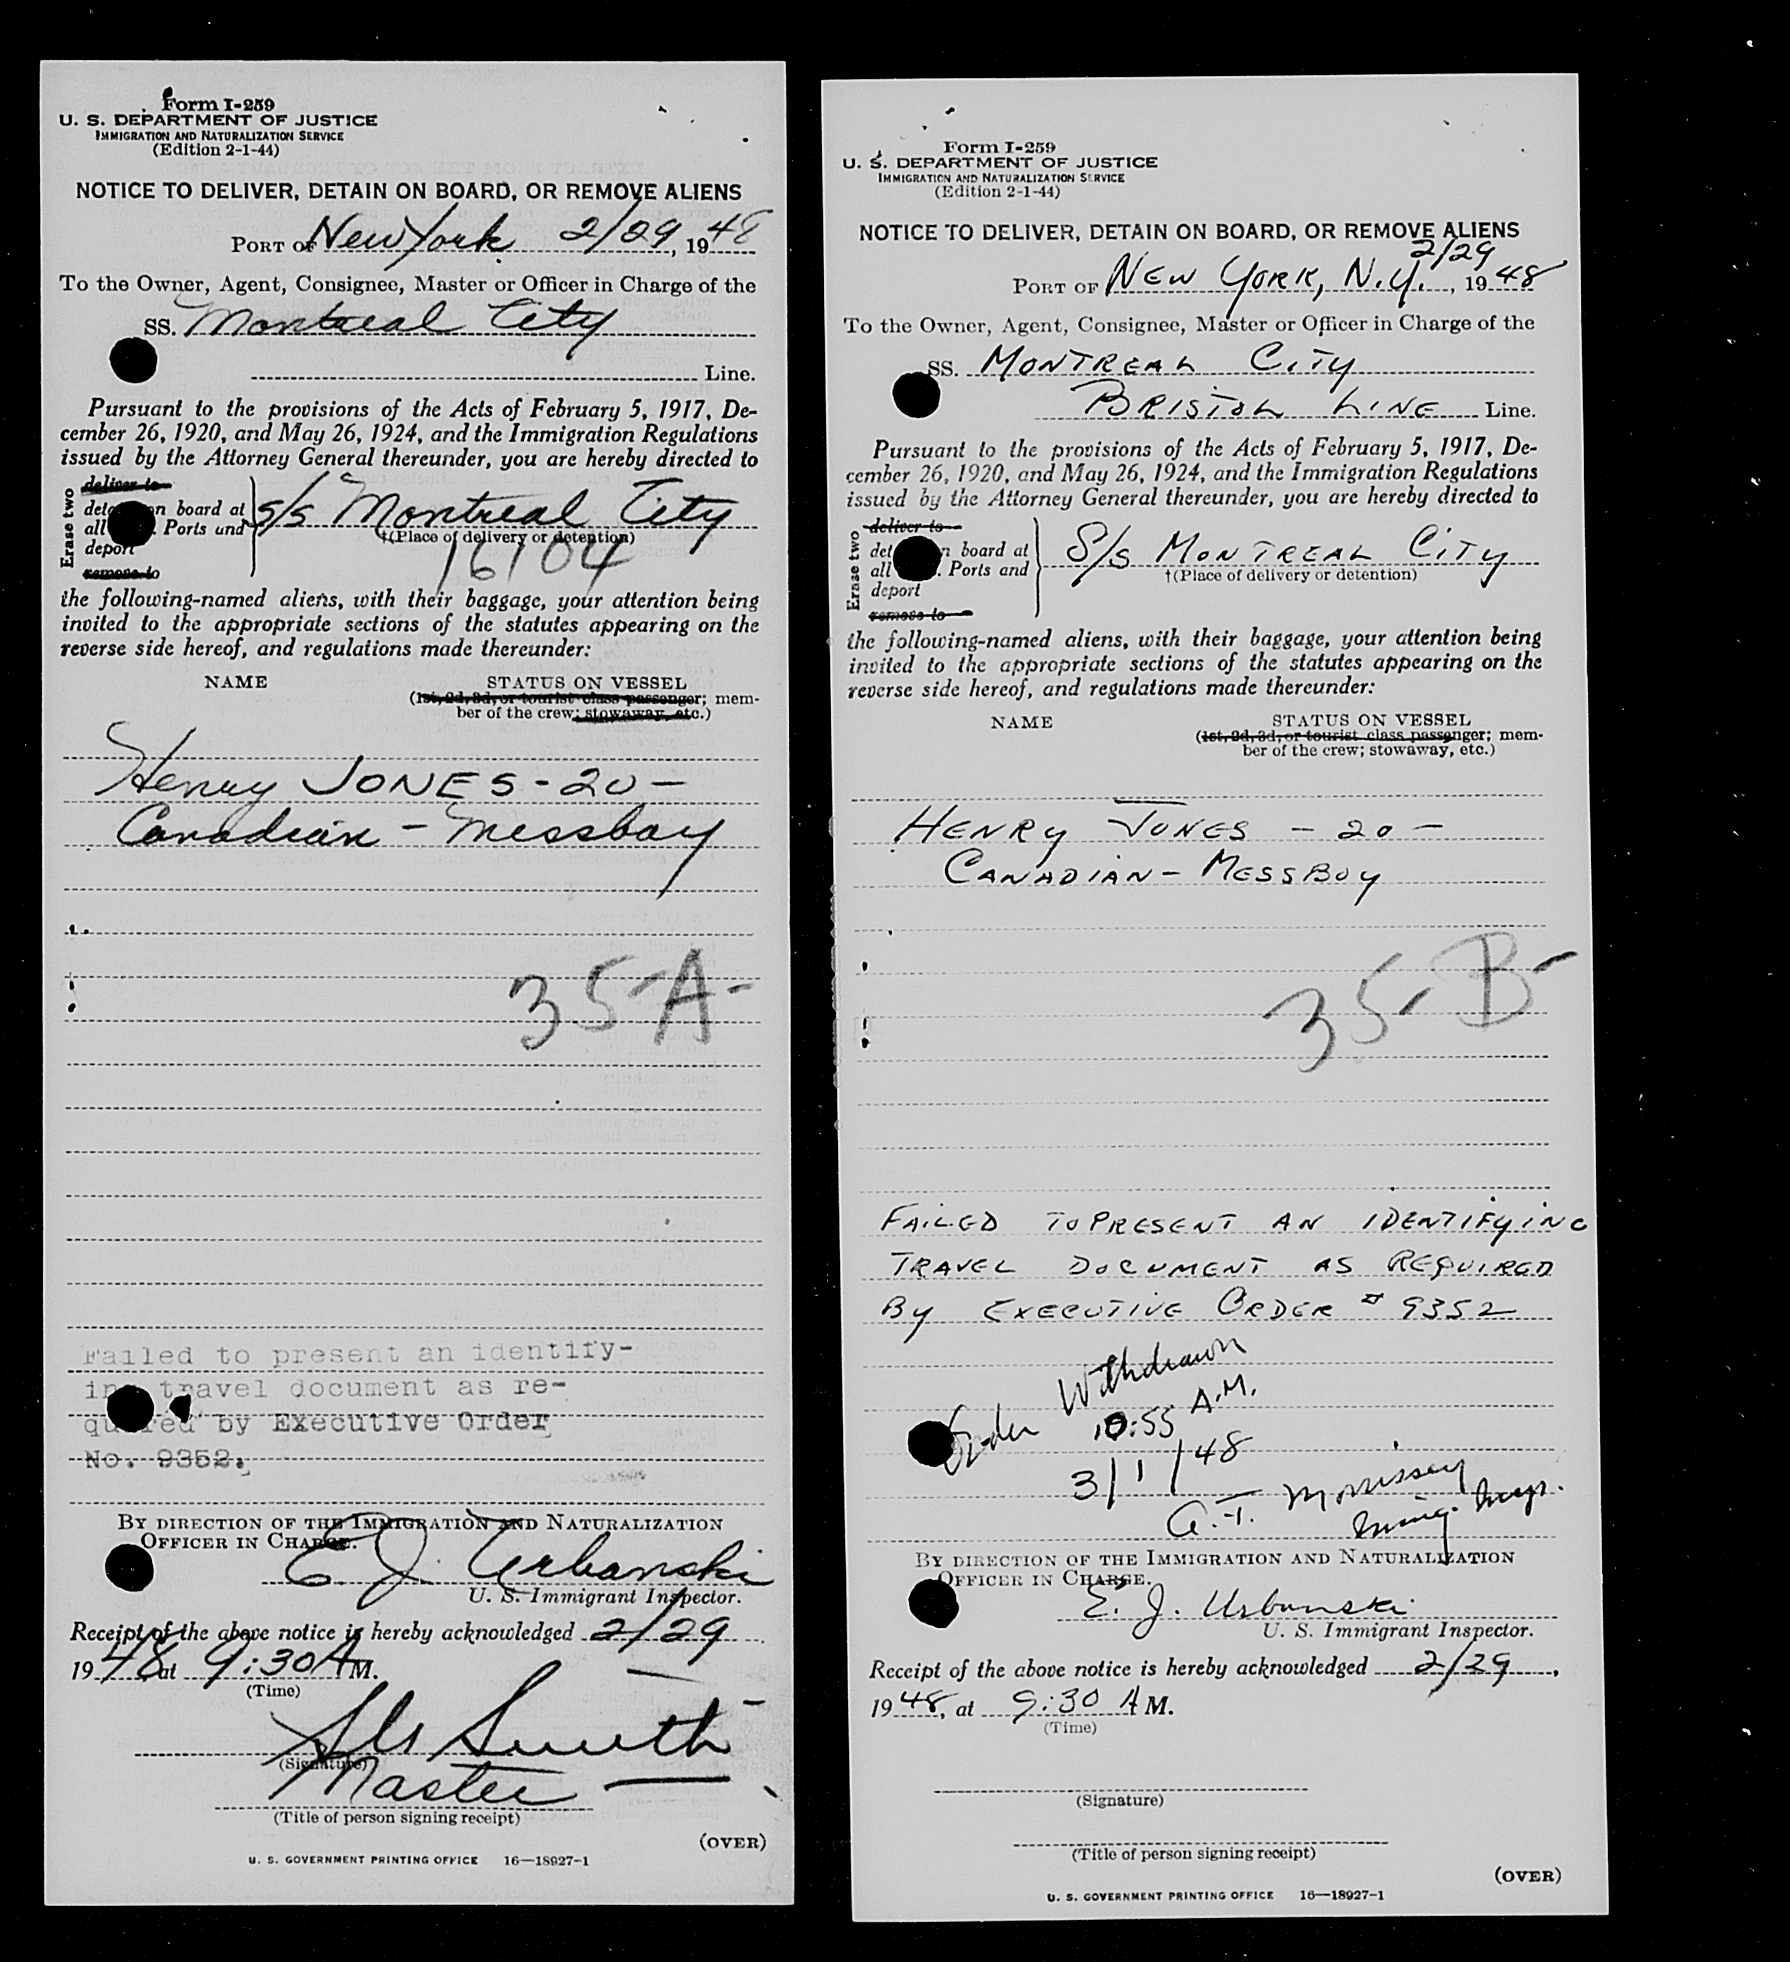 Form I-259
U. S. DEPARTMENT OF JUSTICE
IMMIGRATION AND NATURALIZATION SERVICE
(Edition 2-1-44)
NOTICE TO DELIVER, DETAIN ON BOARD, OR REMOVE ALIENS
PORT OF New York 2/29, 1948
To the Owner, Agent, Consignee, Master or Officer in Charge of the
SS. Montreal City
Line.
Pursuant to the provisions of the Acts of February 5, 1917, De-
cember 26, 1920, and May 26, 1924, and the Immigration Regulations
issued by the Attorney General thereunder, you are hereby directed to
Erase two
deliver to
board at
all Ports and
deport
remove to
s/s Montreal City
†(Place of delivery or detention)
16104
the following-named aliens, with their baggage, your attention being
invited to the appropriate sections of the statutes appearing on the
reverse side hereof, and regulations made thereunder:
NAME STATUS ON VESSEL
(1st, 2d, 3d, or tourist class passenger; mem-
ber of the crew; stowaway, etc.)
Henry JONES - 20 -
Canadian - Messboy
35-A-
Failed to present an identify-
ing travel document as re-
quired by Executive Order
No. 9352.
BY DIRECTION OF THE IMMIGRATION AND NATURALIZATION
OFFICER IN CHARGE.
E. J. Urbanski
U. S. Immigrant Inspector.
Receipt of the above notice is hereby acknowledged 2/29
1948 at 9:30 A M.
(Time)
Smith
(Signature)
Master
(Title of person signing receipt)
(OVER)
U. S. GOVERNMENT PRINTING OFFICE 16—18927-1
Form I-259
U. S. DEPARTMENT OF JUSTICE
IMMIGRATION AND NATURALIZATION SERVICE
(Edition 2-1-44)
NOTICE TO DELIVER, DETAIN ON BOARD, OR REMOVE ALIENS
2/29
PORT OF NEW YORK, N.Y., 1948
To the Owner, Agent, Consignee, Master or Officer in Charge of the
SS. MONTREAL CITY
BRISTOL LINE Line.
Pursuant to the provisions of the Acts of February 5, 1917, De-
cember 26, 1920, and May 26, 1924, and the Immigration Regulations
issued by the Attorney General thereunder, you are hereby directed to
Erase two
deliver to
board at
all Ports and
deport
remove to
S/s MONTREAL CITY
†(Place of delivery or detention)
the following-named aliens, with their baggage, your attention being
invited to the appropriate sections of the statutes appearing on the
reverse side hereof, and regulations made thereunder:
NAME STATUS ON VESSEL
(1st, 2d, 3d, or tourist class passenger; mem-
ber of the crew; stowaway, etc.)
HENRY JONES - 20 -
CANADIAN - MESSBOY
35-B-
FAILED TO PRESENT AN IDENTIFYING
TRAVEL DOCUMENT AS REQUIRED
BY EXECUTIVE ORDER # 9352
Order Withdrawn
10:55 A.M.
3/1/48
A.T. Morrissey
Immig. Insp.
BY DIRECTION OF THE IMMIGRATION AND NATURALIZATION
OFFICER IN CHARGE.
E. J. Urbanski
U. S. Immigrant Inspector.
Receipt of the above notice is hereby acknowledged 2/29,
1948, at 9:30 A M.
(Time)
(Signature)
(Title of person signing receipt)
(OVER)
U. S. GOVERNMENT PRINTING OFFICE 16—18927-1